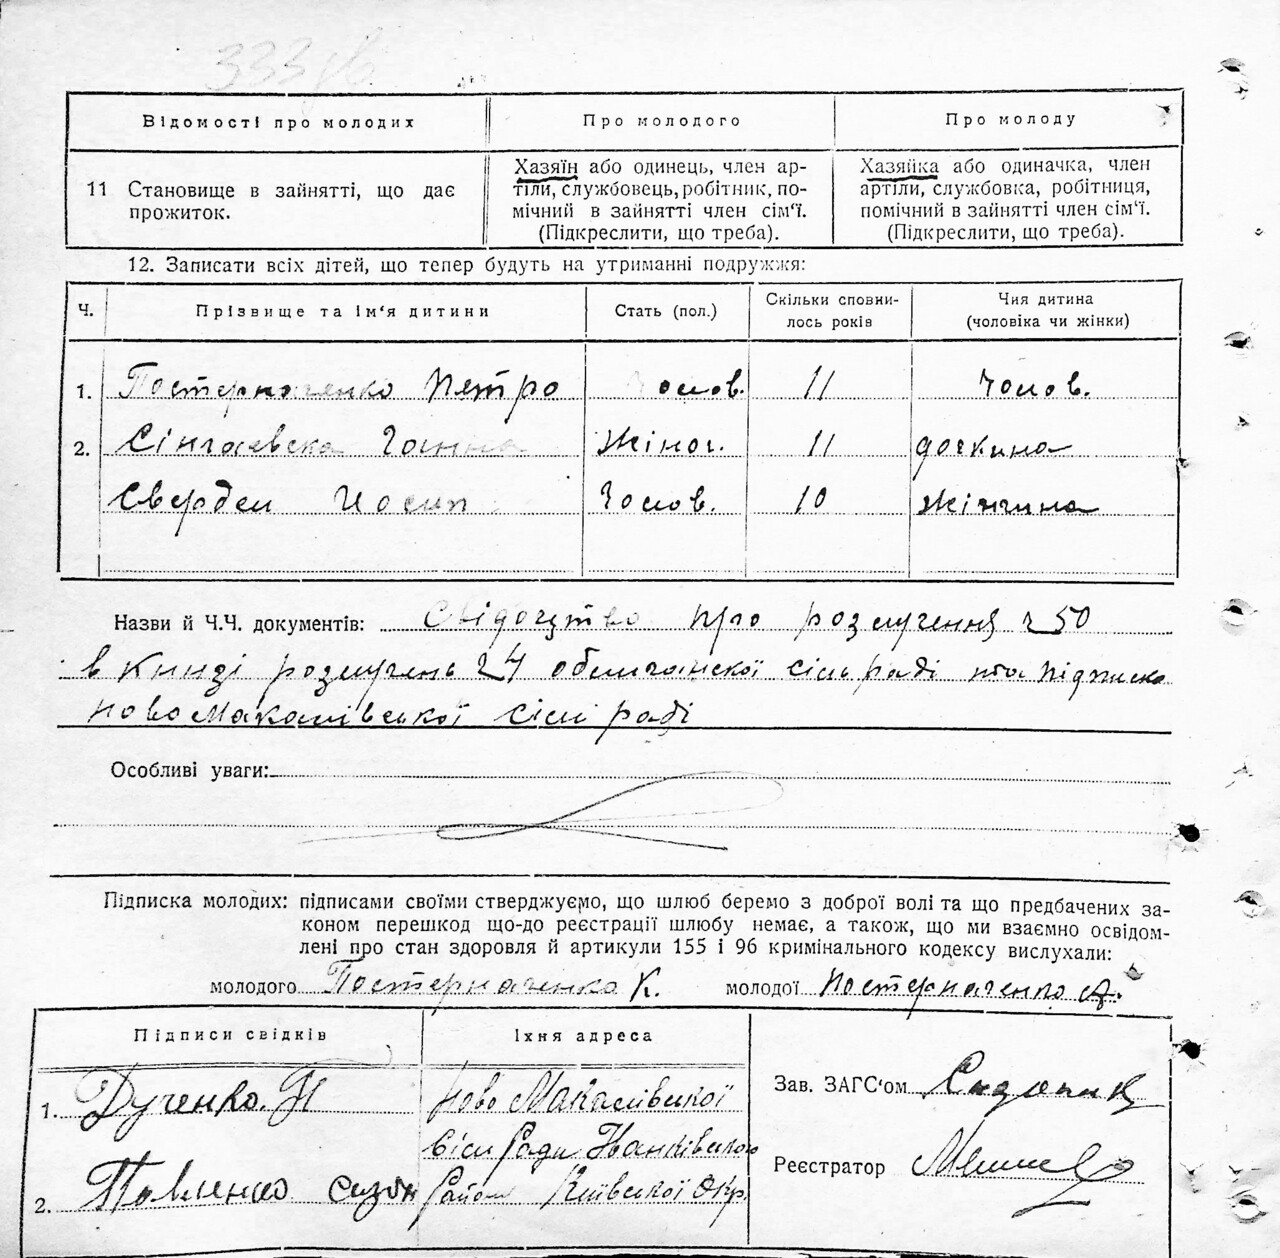 333
Відомості про молодих
Про молодого
Про молоду
11 Становище в зайнятті, що дає
прожиток.
Хазяїн або одинець, член ар-
тілі, службовець, робітник, по-
мічний в зайнятті член сім'ї.
(Підкреслити, що треба).
Хазяйка або одиначка, член
артіли, службовка, робітниця,
помічний в зайнятті член сім'ї.
(Підкреслити, що треба).
12. Записати всіх дітей, що тепер будуть на утриманні подружжя:
Ч.
Прізвище та ім'я дитини
Стать (пол.)
Скільки сповни-
лось років
Чия дитина
(чоловіка чи жінки)
1. Постерначенко Петро чолов. 11 чолов.
2. Сінгаевска Ганна жіноч. 11 дочкина
Свердел Иосип чолов. 10 жінчина
Назви й Ч.Ч. документів: Свідоцтво про розлучення ч 50
в книзі розлучень ч 4 сільраді та підписка
Ново Макалівської сіль раді
Особливі уваги:
Підписка молодих: підписами своїми стверджуємо, що шлюб беремо з доброї волі та що предбачених за-
коном перешкод що-до реєстрації шлюбу немає, а також, що ми взаємно освідом-
лені про стан здоровля й артикули 155 і 96 кримінального кодексу вислухали:
молодого Постерначенко К. молодої Постерначенко А.
Підписи свідків
Їхня адреса
1. Дученко П
Ново Макалівської
сіль Ради Іванківського
2. Павленко
Район Київської Окр.
Зав. ЗАГС'ом
Реєстратор